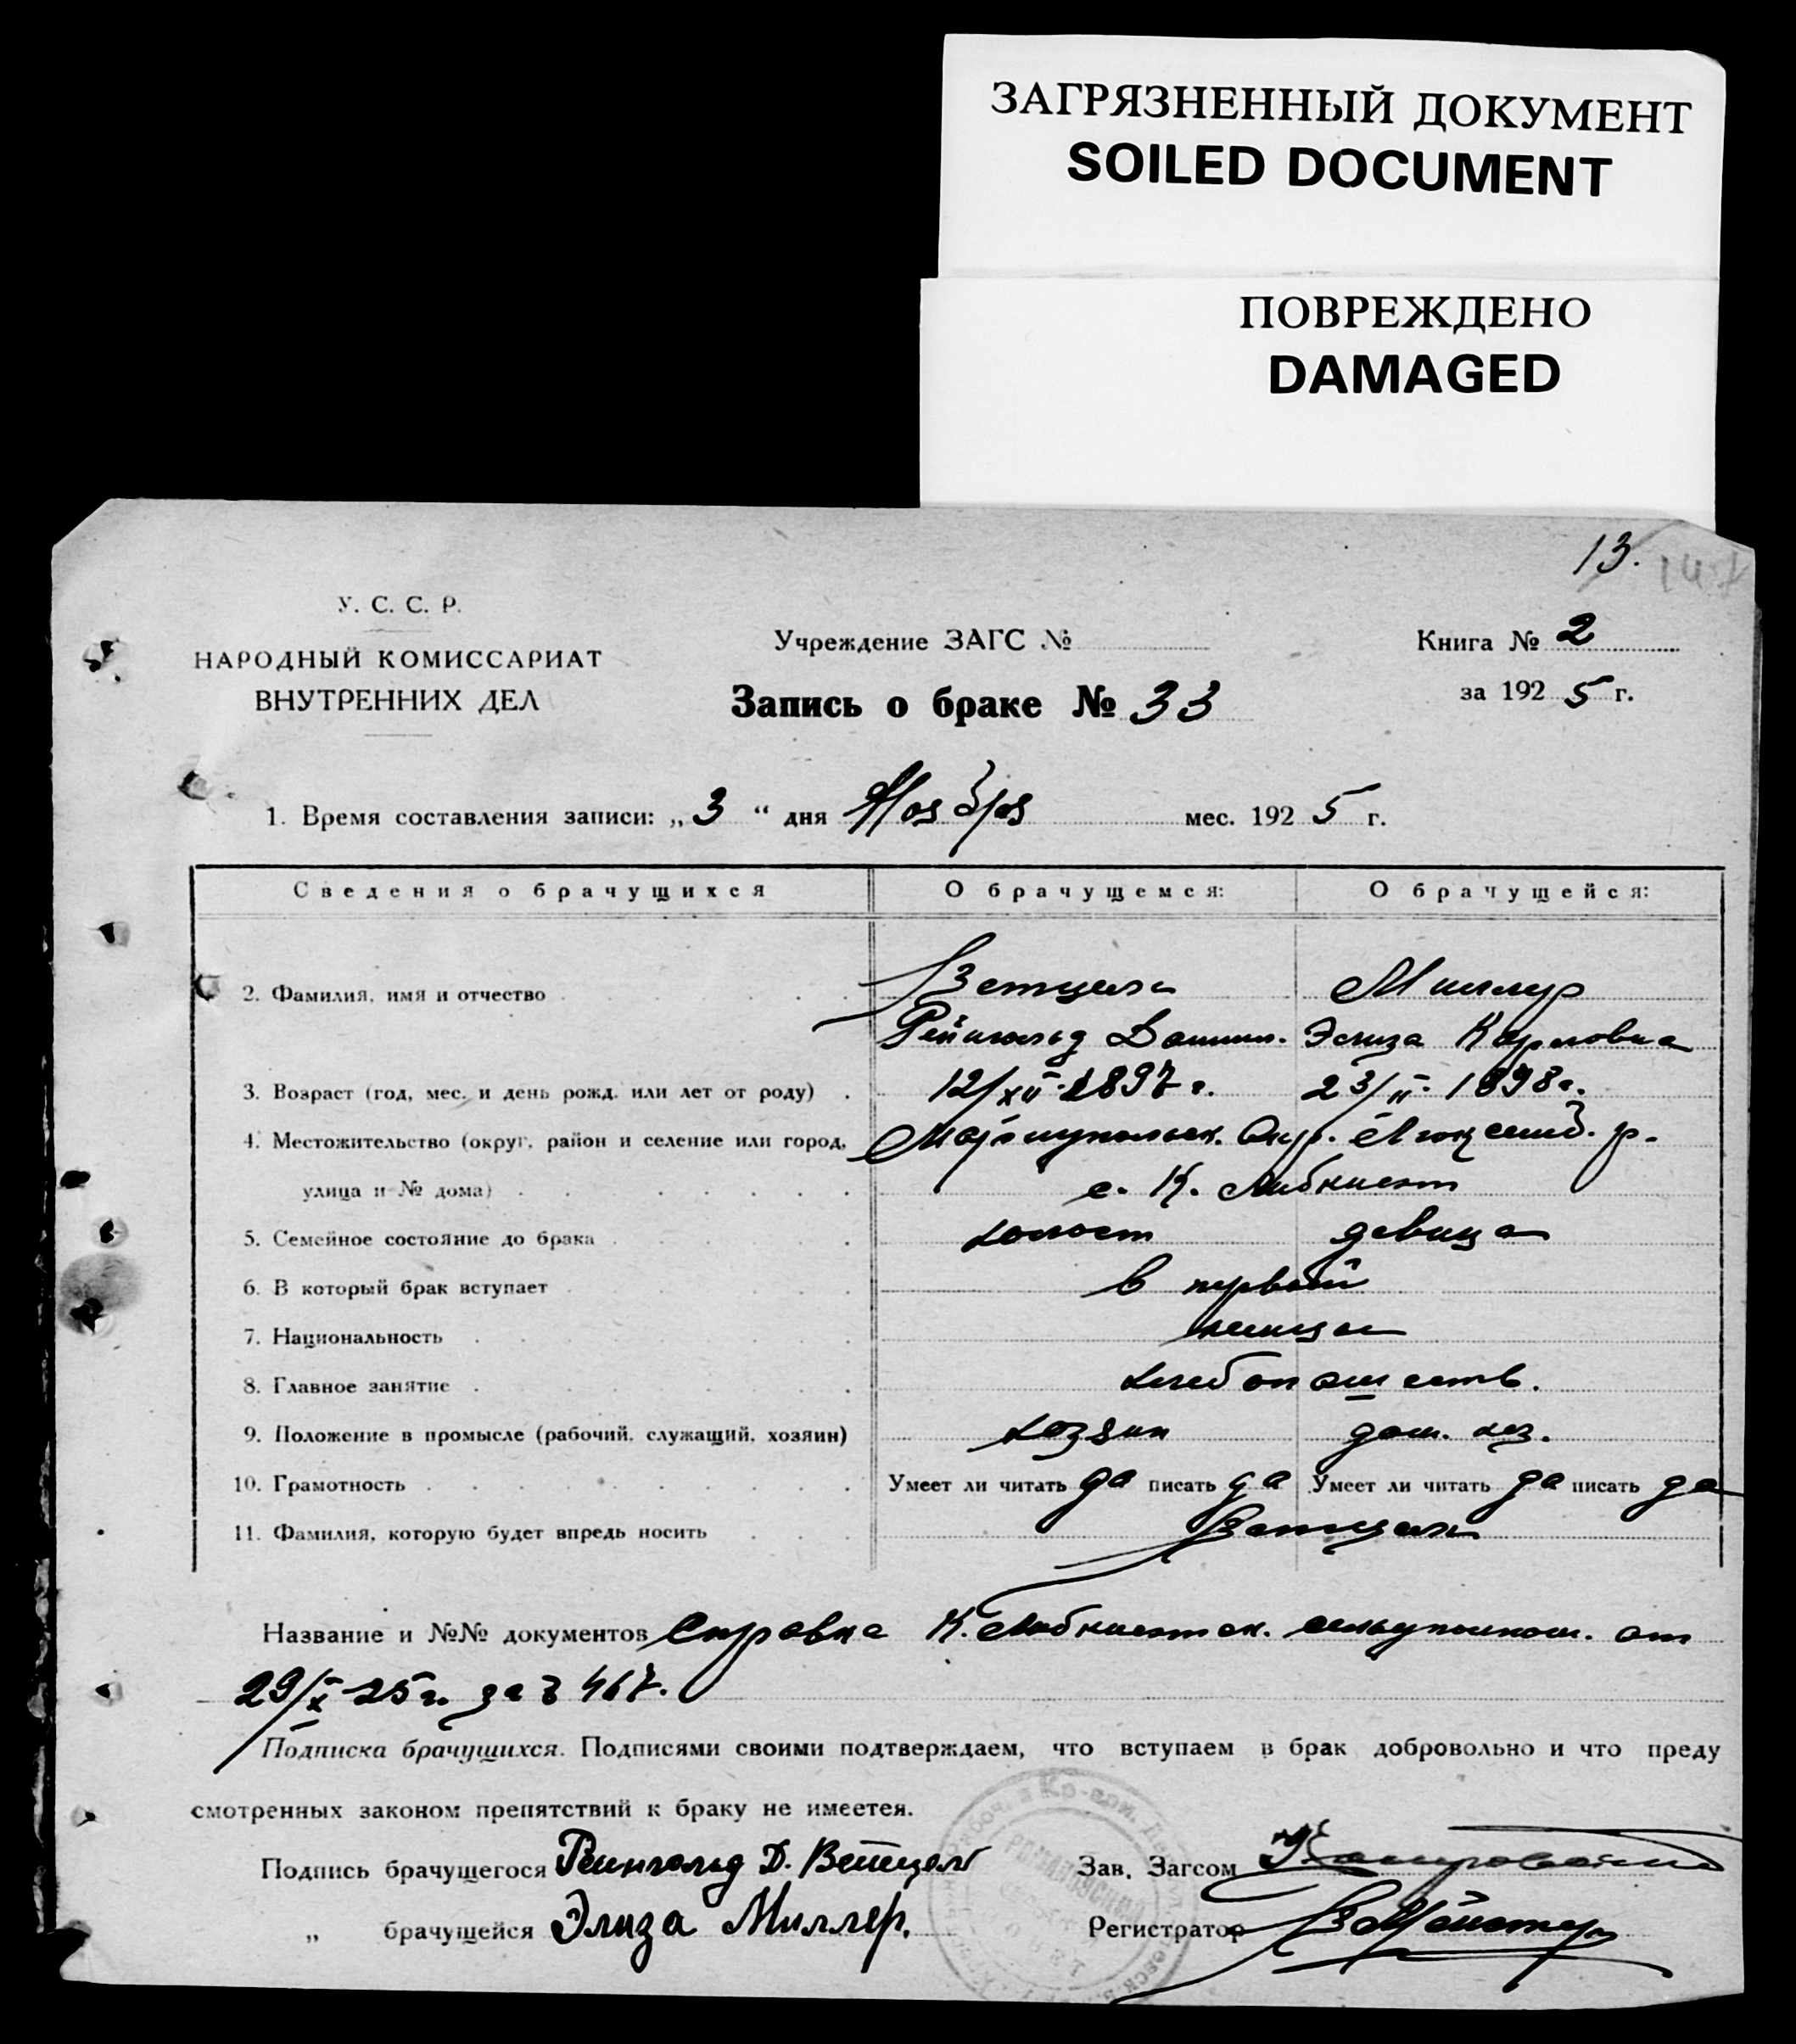 ЗАГРЯЗНЕННЫЙ ДОКУМЕНТ
SOILED DOCUMENT
ПОВРЕЖДЕНО
DAMAGED
13.
У. С. С. Р.
НАРОДНЫЙ КОМИССАРИАТ
ВНУТРЕННИХ ДЕЛ
Учреждение ЗАГС №
Книга № 2
Запись о браке № 33
за 1925 г.
1. Время составления записи: „3“ дня Ноября мес. 1925 г.
Сведения о брачущихся О брачущемся: О брачущейся:
2. Фамилия, имя и отчество Ветцель Миллер
Рейнгольд Даниил. Элиза Карловна
3. Возраст (год, мес. и день рожд. или лет от роду) 12/XII 1897 г. 23/II 1898 г.
4. Местожительство (округ, район и селение или город, Мариупольск. Окр. Люксемб. р.
улица и № дома) с. К. Либкнехт
5. Семейное состояние до брака холост девица
6. В который брак вступает в первый
7. Национальность немцы
8. Главное занятие хлебопашеств.
9. Положение в промысле (рабочий, служащий, хозяин) хозяин дом. хоз.
10. Грамотность Умеет ли читать да писать да Умеет ли читать да писать да
11. Фамилия, которую будет впредь носить Ветцель
Название и №№ документов Справка К. Либкнехтск. от
29/X 25 г. за № 467.
Подписка брачущихся. Подписями своими подтверждаем, что вступаем в брак добровольно и что преду
смотренных законом препятствий к браку не имеетея.
Подпись брачущегося Рейнгольд Д. Ветцель Зав. Загсом
„ брачущейся Элиза Миллер. Регистратор